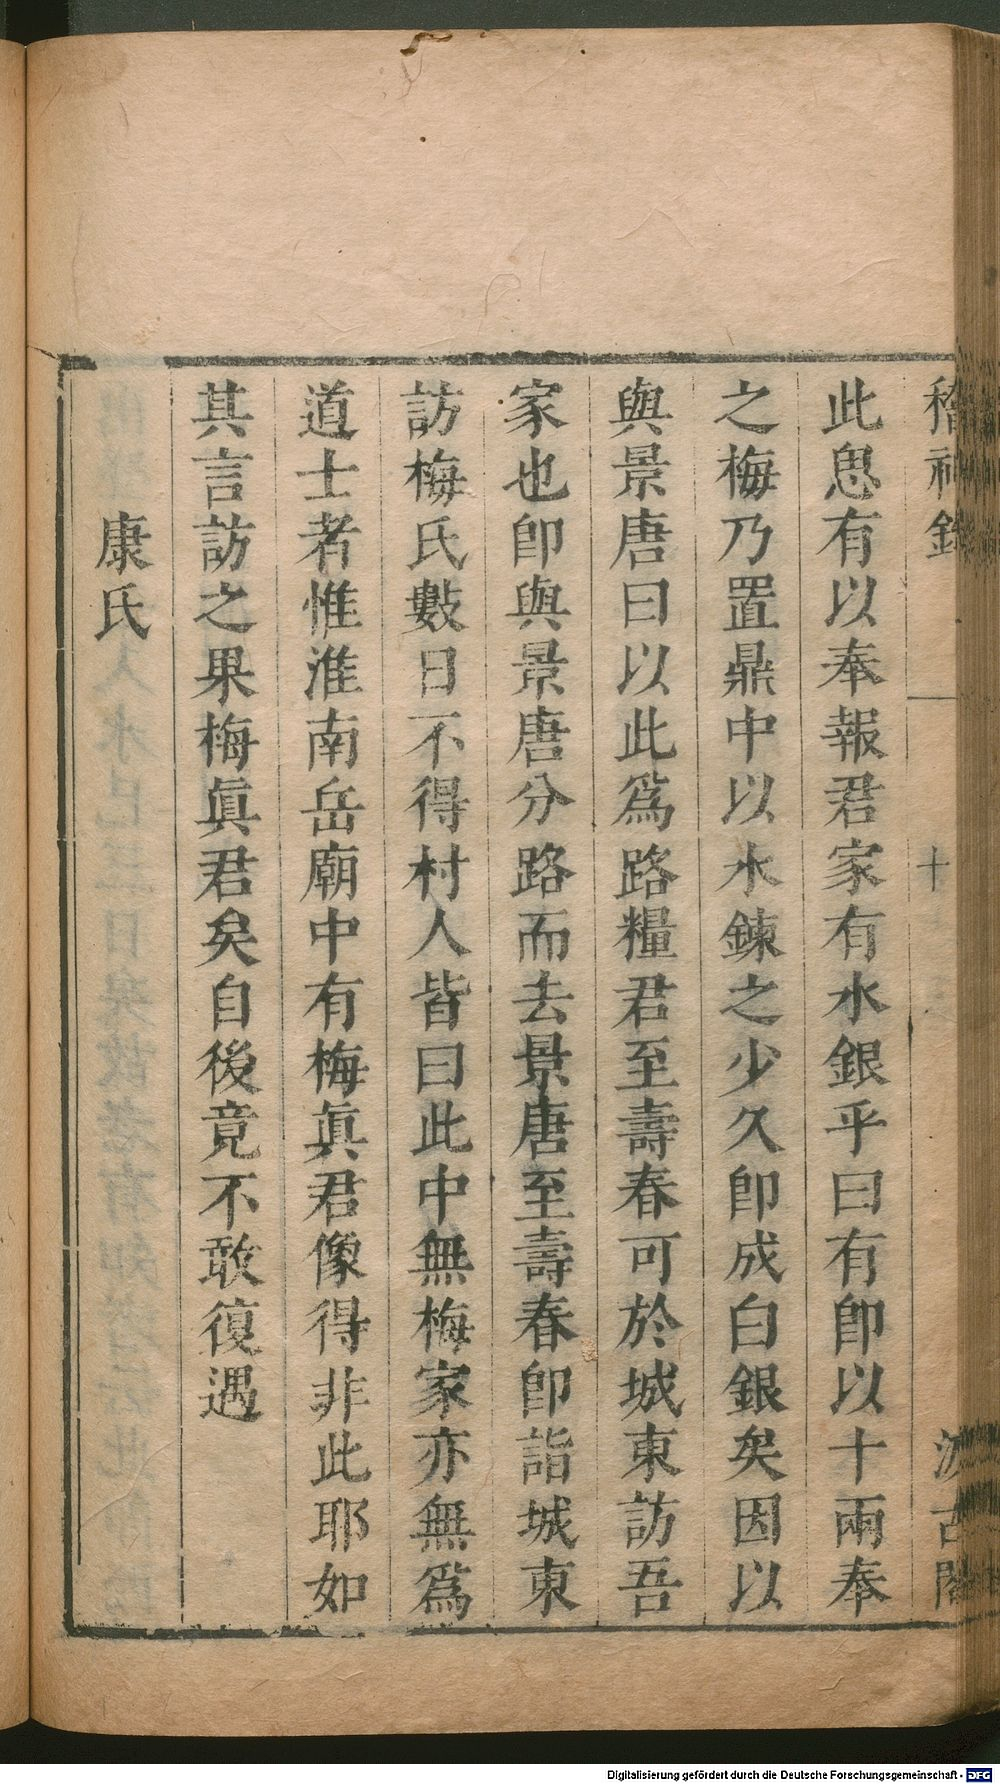 稽神錄
十
汲古閣
此思有以奉報君家有水銀乎曰有卽以十兩奉
之梅乃置鼎中以水鍊之少久卽成白銀矣因以
與景唐曰以此爲路糧君至壽春可於城東訪吾
家也卽與景唐分路而去景唐至壽春卽詣城東
訪梅氏數日不得村人皆曰此中無梅家亦無爲
道士者惟淮南岳廟中有梅眞君像得非此耶如
其言訪之果梅眞君矣自後竟不敢復遇
康氏
Digitalisierung gefördert durch die Deutsche Forschungsgemeinschaft - DFG